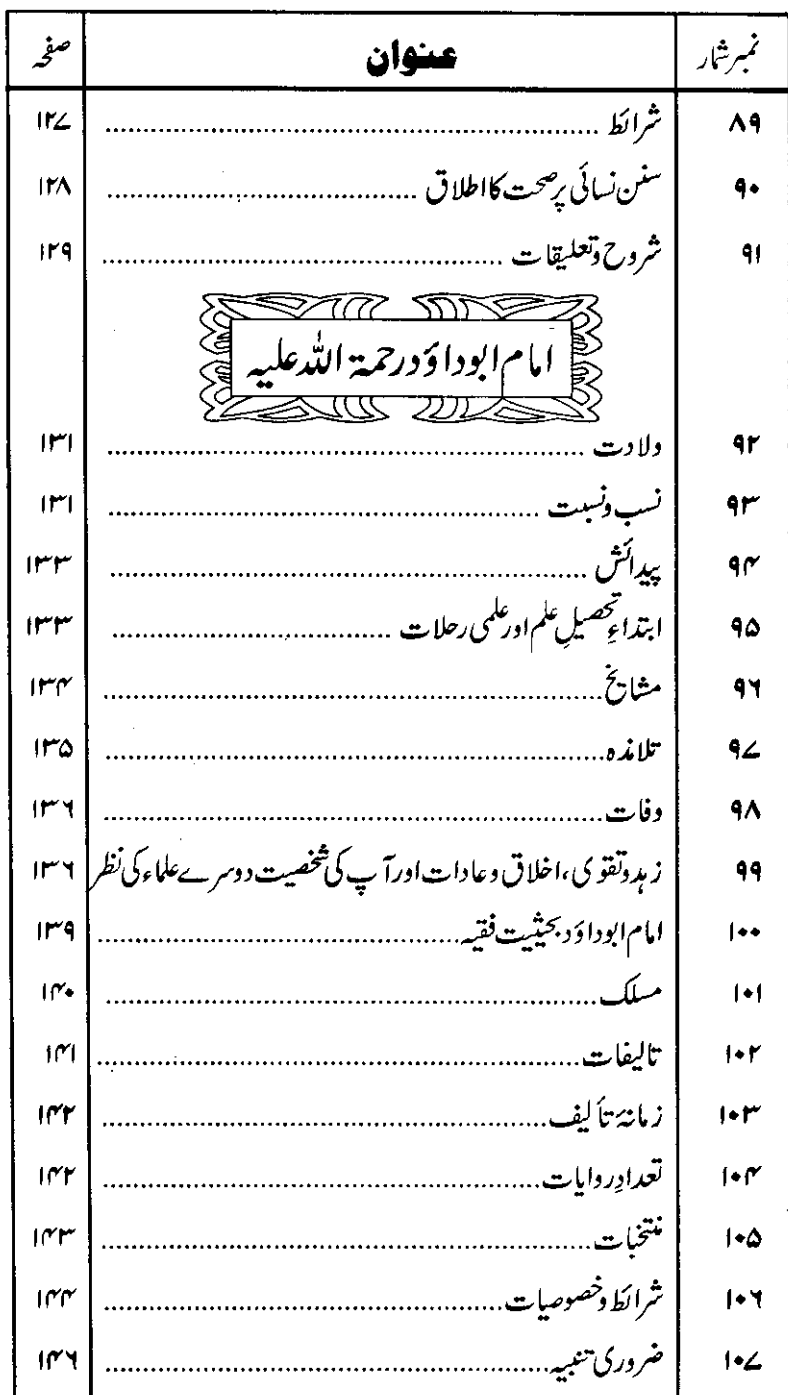 نمبرشمار عنوان صفحہ
۸۹ شرائط ۱۲۷
۹۰ سنن نسائی پر صحت کا اطلاق ۱۲۸
۹۱ شروح وتعلیقات ۱۲۹
امام ابوداؤد رحمۃ اللہ علیہ
۹۲ ولادت ۱۳۱
۹۳ نسب ونسبت ۱۳۱
۹۴ پیدائش ۱۳۳
۹۵ ابتداءِ تحصیلِ علم اور علمی رحلات ۱۳۳
۹۶ مشایخ ۱۳۴
۹۷ تلامذہ ۱۳۵
۹۸ وفات ۱۳۶
۹۹ زہد وتقوی، اخلاق وعادات اور آپ کی شخصیت دوسرے علماء کی نظر ۱۳۶
۱۰۰ امام ابوداؤد بحیثیت فقیہ ۱۳۹
۱۰۱ مسلک ۱۴۰
۱۰۲ تالیفات ۱۴۱
۱۰۳ زمانۂ تألیف ۱۴۲
۱۰۴ تعدادِ روایات ۱۴۲
۱۰۵ منتخبات ۱۴۳
۱۰۶ شرائط وخصوصیات ۱۴۴
۱۰۷ ضروری تنبیہ ۱۴۶